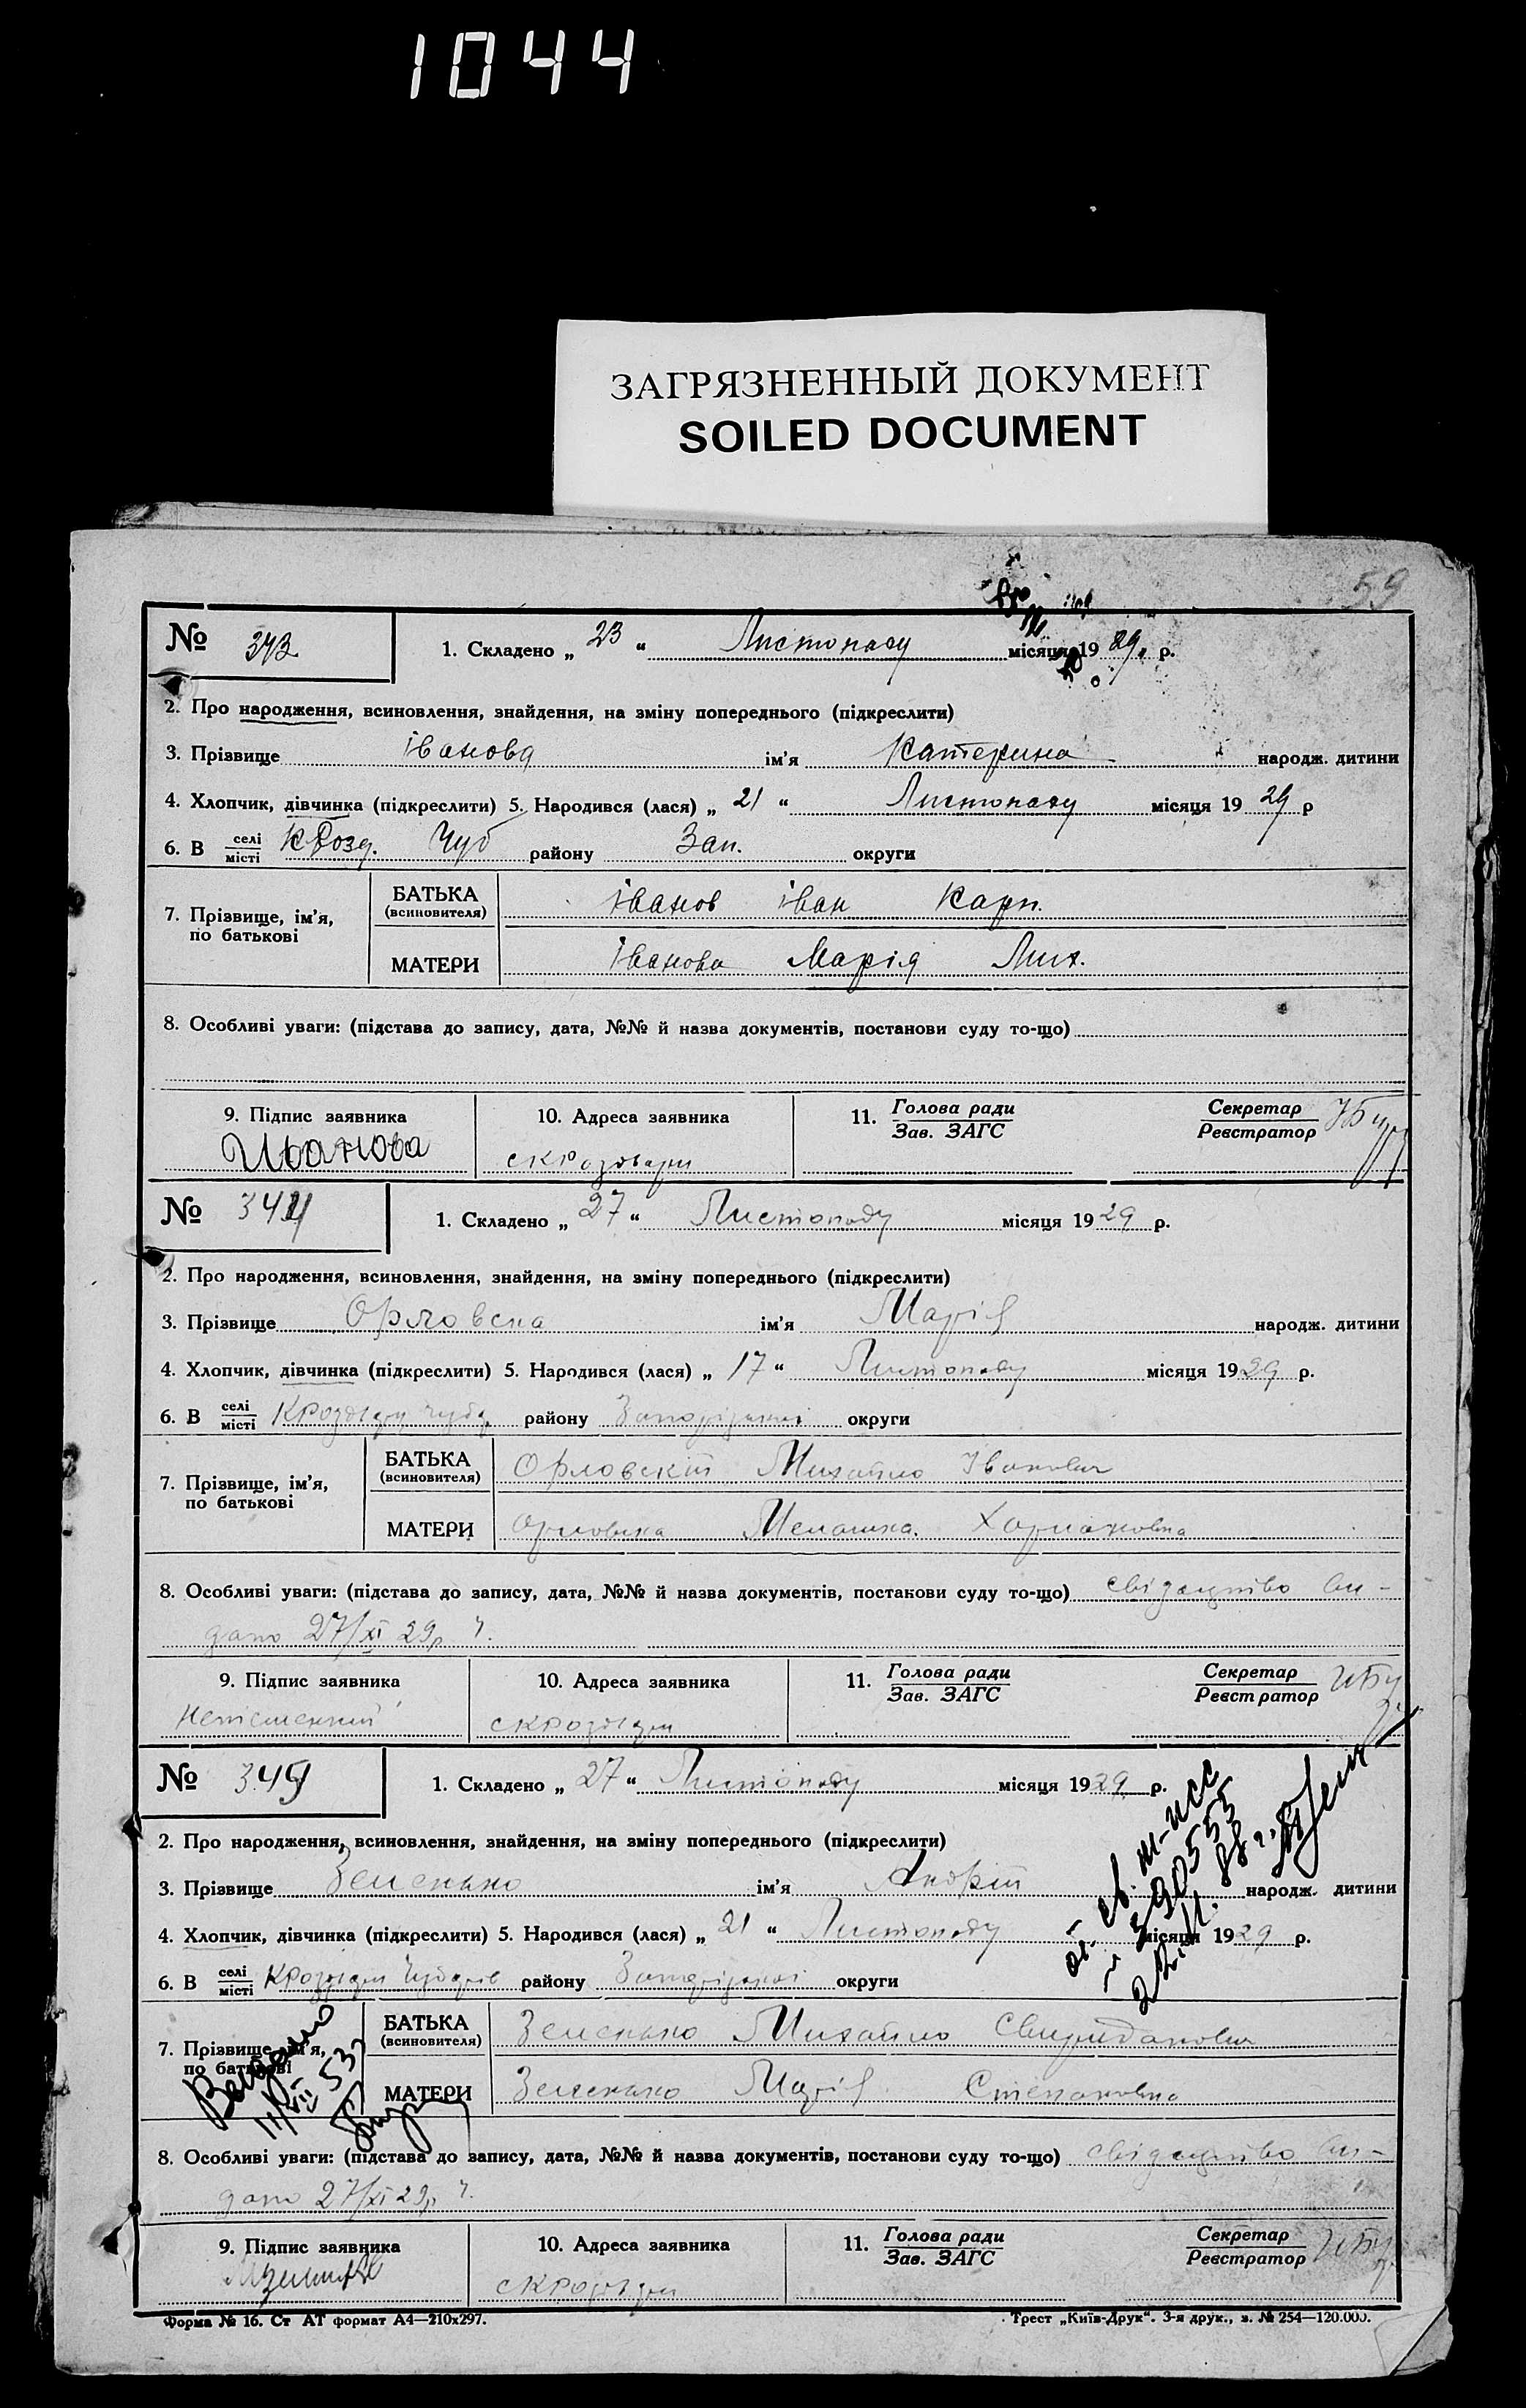 1044
ЗАГРЯЗНЕННЫЙ ДОКУМЕНТ
SOILED DOCUMENT
59
№ 343 1. Складено „ 23 “ Листопаду місяця 19 29 р.
2. Про народження, всиновлення, знайдення, на зміну попереднього (підкреслити)
3. Прізвище Іванова ім’я Катерина народж. дитини
4. Хлопчик, дівчинка (підкреслити) 5. Народився (лася) „ 21 “ Листопаду місяця 19 29 р
6. В селі місті КРозд. Чуб району Зап. округи
7. Прізвище, ім’я, по батькові
БАТЬКА (всиновителя) Іванов Іван Карп.
МАТЕРИ Іванова Марія Мих.
8. Особливі уваги: (підстава до запису, дата, №№ й назва документів, постанови суду то-що)
9. Підпис заявника 10. Адреса заявника 11. Голова ради Зав. ЗАГС Секретар Реєстратор
Иванова
№ 344 1. Складено „ 27 “ Листопаду місяця 19 29 р.
2. Про народження, всиновлення, знайдення, на зміну попереднього (підкреслити)
3. Прізвище Орловска ім’я Марія народж. дитини
4. Хлопчик, дівчинка (підкреслити) 5. Народився (лася) „ 17 “ Листопаду місяця 19 29 р.
6. В селі місті району Запорізької округи
7. Прізвище, ім’я, по батькові
БАТЬКА (всиновителя) Орловскій Михайло Іванович
МАТЕРИ Орловska Меланка
8. Особливі уваги: (підстава до запису, дата, №№ й назва документів, постанови суду то-що) свідоцтво ви-
дано 27/XI 29р.
9. Підпис заявника 10. Адреса заявника 11. Голова ради Зав. ЗАГС Секретар Реєстратор
Неписменний
№ 345 1. Складено „ 27 “ Листопаду місяця 19 29 р.
2. Про народження, всиновлення, знайдення, на зміну попереднього (підкреслити)
3. Прізвище Зеленько ім’я Андрій народж. дитини
4. Хлопчик, дівчинка (підкреслити) 5. Народився (лася) „ 21 “ Листопаду місяця 19 29 р.
6. В селі місті району Запорізької округи
7. Прізвище, ім’я, по батькові
БАТЬКА (всиновителя) Зеленько Михайло Свиридонович
МАТЕРИ Зеленько Марія Степановна
Выдано
8. Особливі уваги: (підстава до запису, дата, №№ й назва документів, постанови суду то-що) свідоцтво ви-
дано 27/XI 29р.
9. Підпис заявника 10. Адреса заявника 11. Голова ради Зав. ЗАГС Секретар Реєстратор
Форма № 16. Ст АТ формат А4—210х297.
Трест „Київ-Друк“. 3-я друк., з. № 254—120.000.